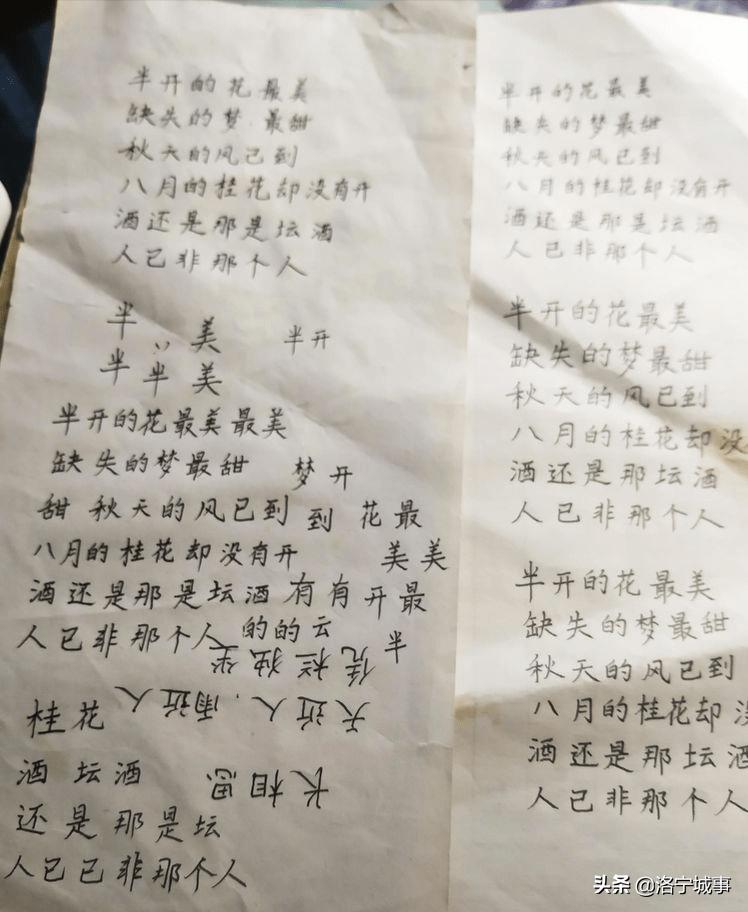 半开的花最美
缺失的梦最甜
秋天的风已到
八月的桂花却没有开
酒还是那是坛酒
人已非那个人
半 美 半开
半半美
半开的花最美最美
缺失的梦最甜 梦开
甜 秋天的风已到 到 花最
八月的桂花却没有开 美美
酒还是那是坛酒 有有开最
人已非那个人 的的云
半
凭栏独坐
桂花
天近人,雨近人
酒坛酒
长相思
还是那是坛
人已已非那个人
半开的花最美
缺失的梦最甜
秋天的风已到
八月的桂花却没有开
酒还是那是坛酒
人已非那个人
半开的花最美
缺失的梦最甜
秋天的风已到
八月的桂花却没
酒还是那坛酒
人已非那个人
半开的花最美
缺失的梦最甜
秋天的风已到
八月的桂花却没
酒还是那坛酒
人已非那个人
头条 @洛宁城事